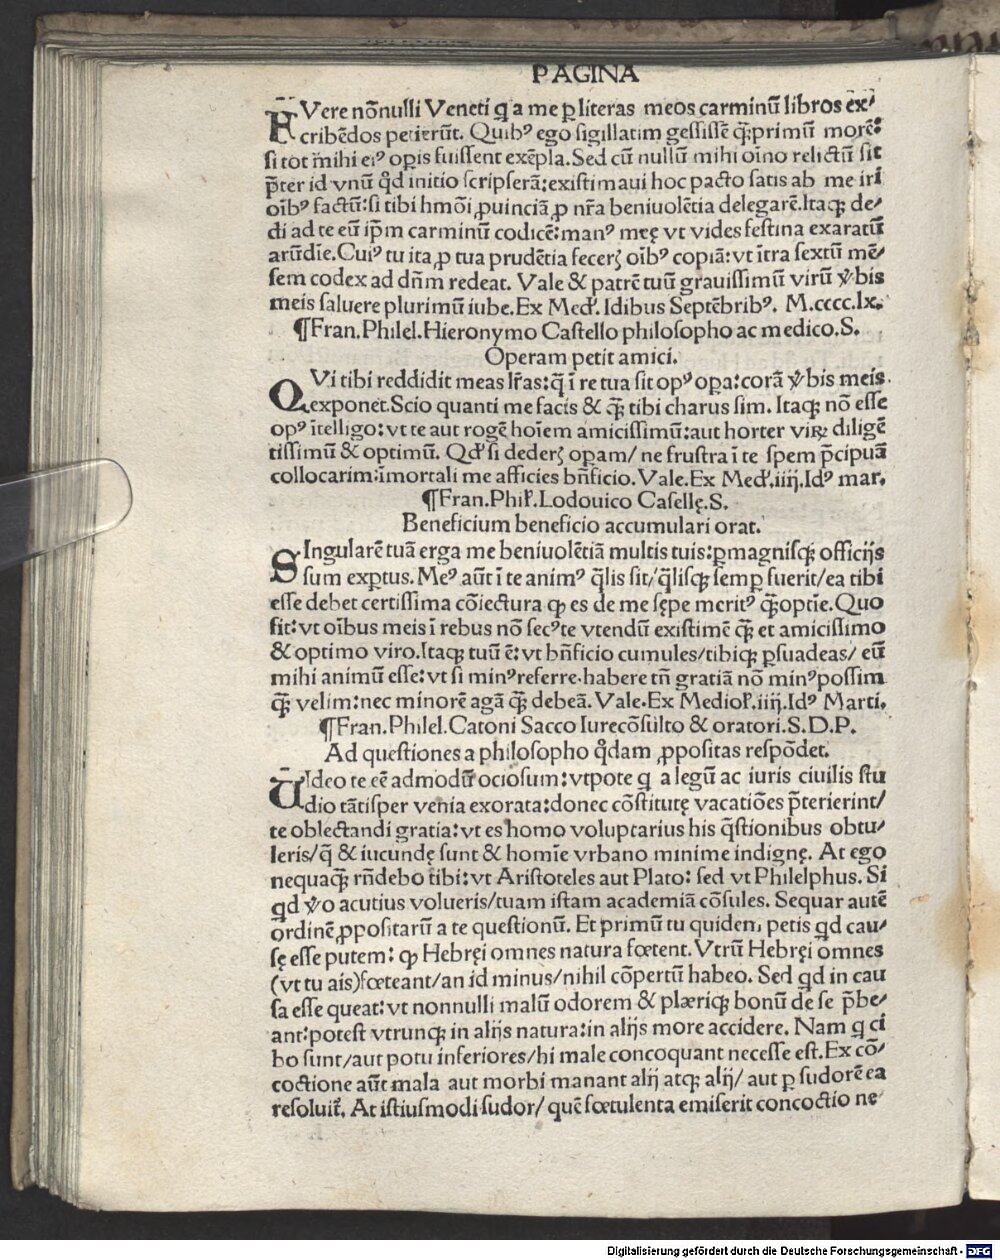 PAGINA
FVere nōnulli Veneti q̄ a me ꝑ literas meos carminū libros ex/
cribēdos petierūt. Quibꝰ ego sigillatim gessissē q̄ꝫprimū morē:
si tot mihi eiꝰ oꝑis fuissent exēpla. Sed cū nullū mihi oīno relictū sit
p̄ter id vnū qd̄ initio scripserā: existimaui hoc pacto satis ab me iri
oībꝰ factū: si tibi hmōi ꝓuinciā ꝓ nr̄a beniuolētia delegarē. Itaqꝫ de/
di ad te eū ip̄m carminū codicē: manꝰ meę vt vides festina exaratū
arūdīe. Cuiꝰ tu ita ꝓ tua prudētia feceꝝ oībꝰ copiā: vt ītra sextū mē/
sem codex ad dn̄m redeat. Vale & patrē tuū grauissimū virū v̄bis
meis saluere plurimū iube. Ex Med̕. Idibus Septēbribꝰ. M.cccc.lx.
¶Fran. Philel. Hieronymo Castello philosopho ac medico. S.
Operam petit amici.
QVi tibi reddidit meas lr̄as: q̄ ī re tua sit opꝰ oꝑa: corā v̄bis meis
exponet. Scio quanti me facis & q̄ꝫ tibi charus sim. Itaqꝫ nō esse
opꝰ ītelligo: vt te aut rogē hoīem amicissimū: aut horter viꝝ diligē
tissimū & optimū. Qd̕ si dedeꝝ opam/ ne frustra ī te spem p̄cipuā
collocarim: īmortali me afficies bn̄ficio. Vale. Ex Med̕. iiij. Idꝰ mar.
¶Fran. Phil̕. Lodouico Casellę. S.
Beneficium beneficio accumulari orat.
SIngularē tuā erga me beniuolētiā multis tuis: ꝑmagnisqꝫ officijs
sum exꝑtus. Meꝰ aūt ī te animꝰ q̄lis sit/ q̄lisqꝫ semꝑ fuerit/ ea tibi
esse debet certissima cōiectura ꝙ es de me sępe meritꝰ q̄ꝫoptīe. Quo
fit: vt oībus meis ī rebus nō secꝰ te vtendū existimē q̄ꝫ et amicissimo
& optimo viro. Itaqꝫ tuū ē: vt bn̄ficio cumules/ tibiqꝫ ꝑsuadeas/ eū
mihi animū esse: vt si minꝰ referre. habere tn̄ gratiā nō minꝰ possim
q̄ꝫ velim: nec minorē agā q̄ꝫ debeā. Vale. Ex Mediol̕. iiij. Idꝰ Marti.
¶Fran. Philel. Catoni Sacco Iurecōsulto & oratori. S.D.P.
Ad questiones a philosopho qd̄am ꝓpositas respōdet.
UIdeo te eē admodū ociosum: vtpote q̄ a legū ac iuris ciuilis stu
dio tātisper venia exorata: donec cōstitutę vacatiōes p̄terierint/
te oblectandi gratia: vt es homo voluptarius his q̄stionibus obtu/
leris/ q̄ & iucundę sunt & homīe vrbano minime indignę. At ego
nequaq̄ꝫ rn̄debo tibi: vt Aristoteles aut Plato: sed vt Philelphus. Si
qd v̄o acutius volueris/ tuam istam academiā cōsules. Sequar autē
ordinē ꝓpositarū a te questionū. Et primū tu quidem petis qd cau/
sę esse putem: ꝙ Hebręi omnes natura fœtent. Vtrū Hebręi omnes
(vt tu ais) fœteant/ an id minus/ nihil cōpertū habeo. Sed qd in cau
sa esse queat: vt nonnulli malū odorem & plæriqꝫ bonū de se p̄be/
ant: potest vtrunqꝫ in alijs natura: in alijs more accidere. Nam q̄ ci
bo sunt/ aut potu inferiores/ hi male concoquant necesse est. Ex cō/
coctione aūt mala aut morbi manant alij atqꝫ alij/ aut ꝑ sudorē ea
resoluit̕. At istiusmodi sudor/ quē fœtulenta emiserit concoctio ne
Digitalisierung gefördert durch die Deutsche Forschungsgemeinschaft - DFG